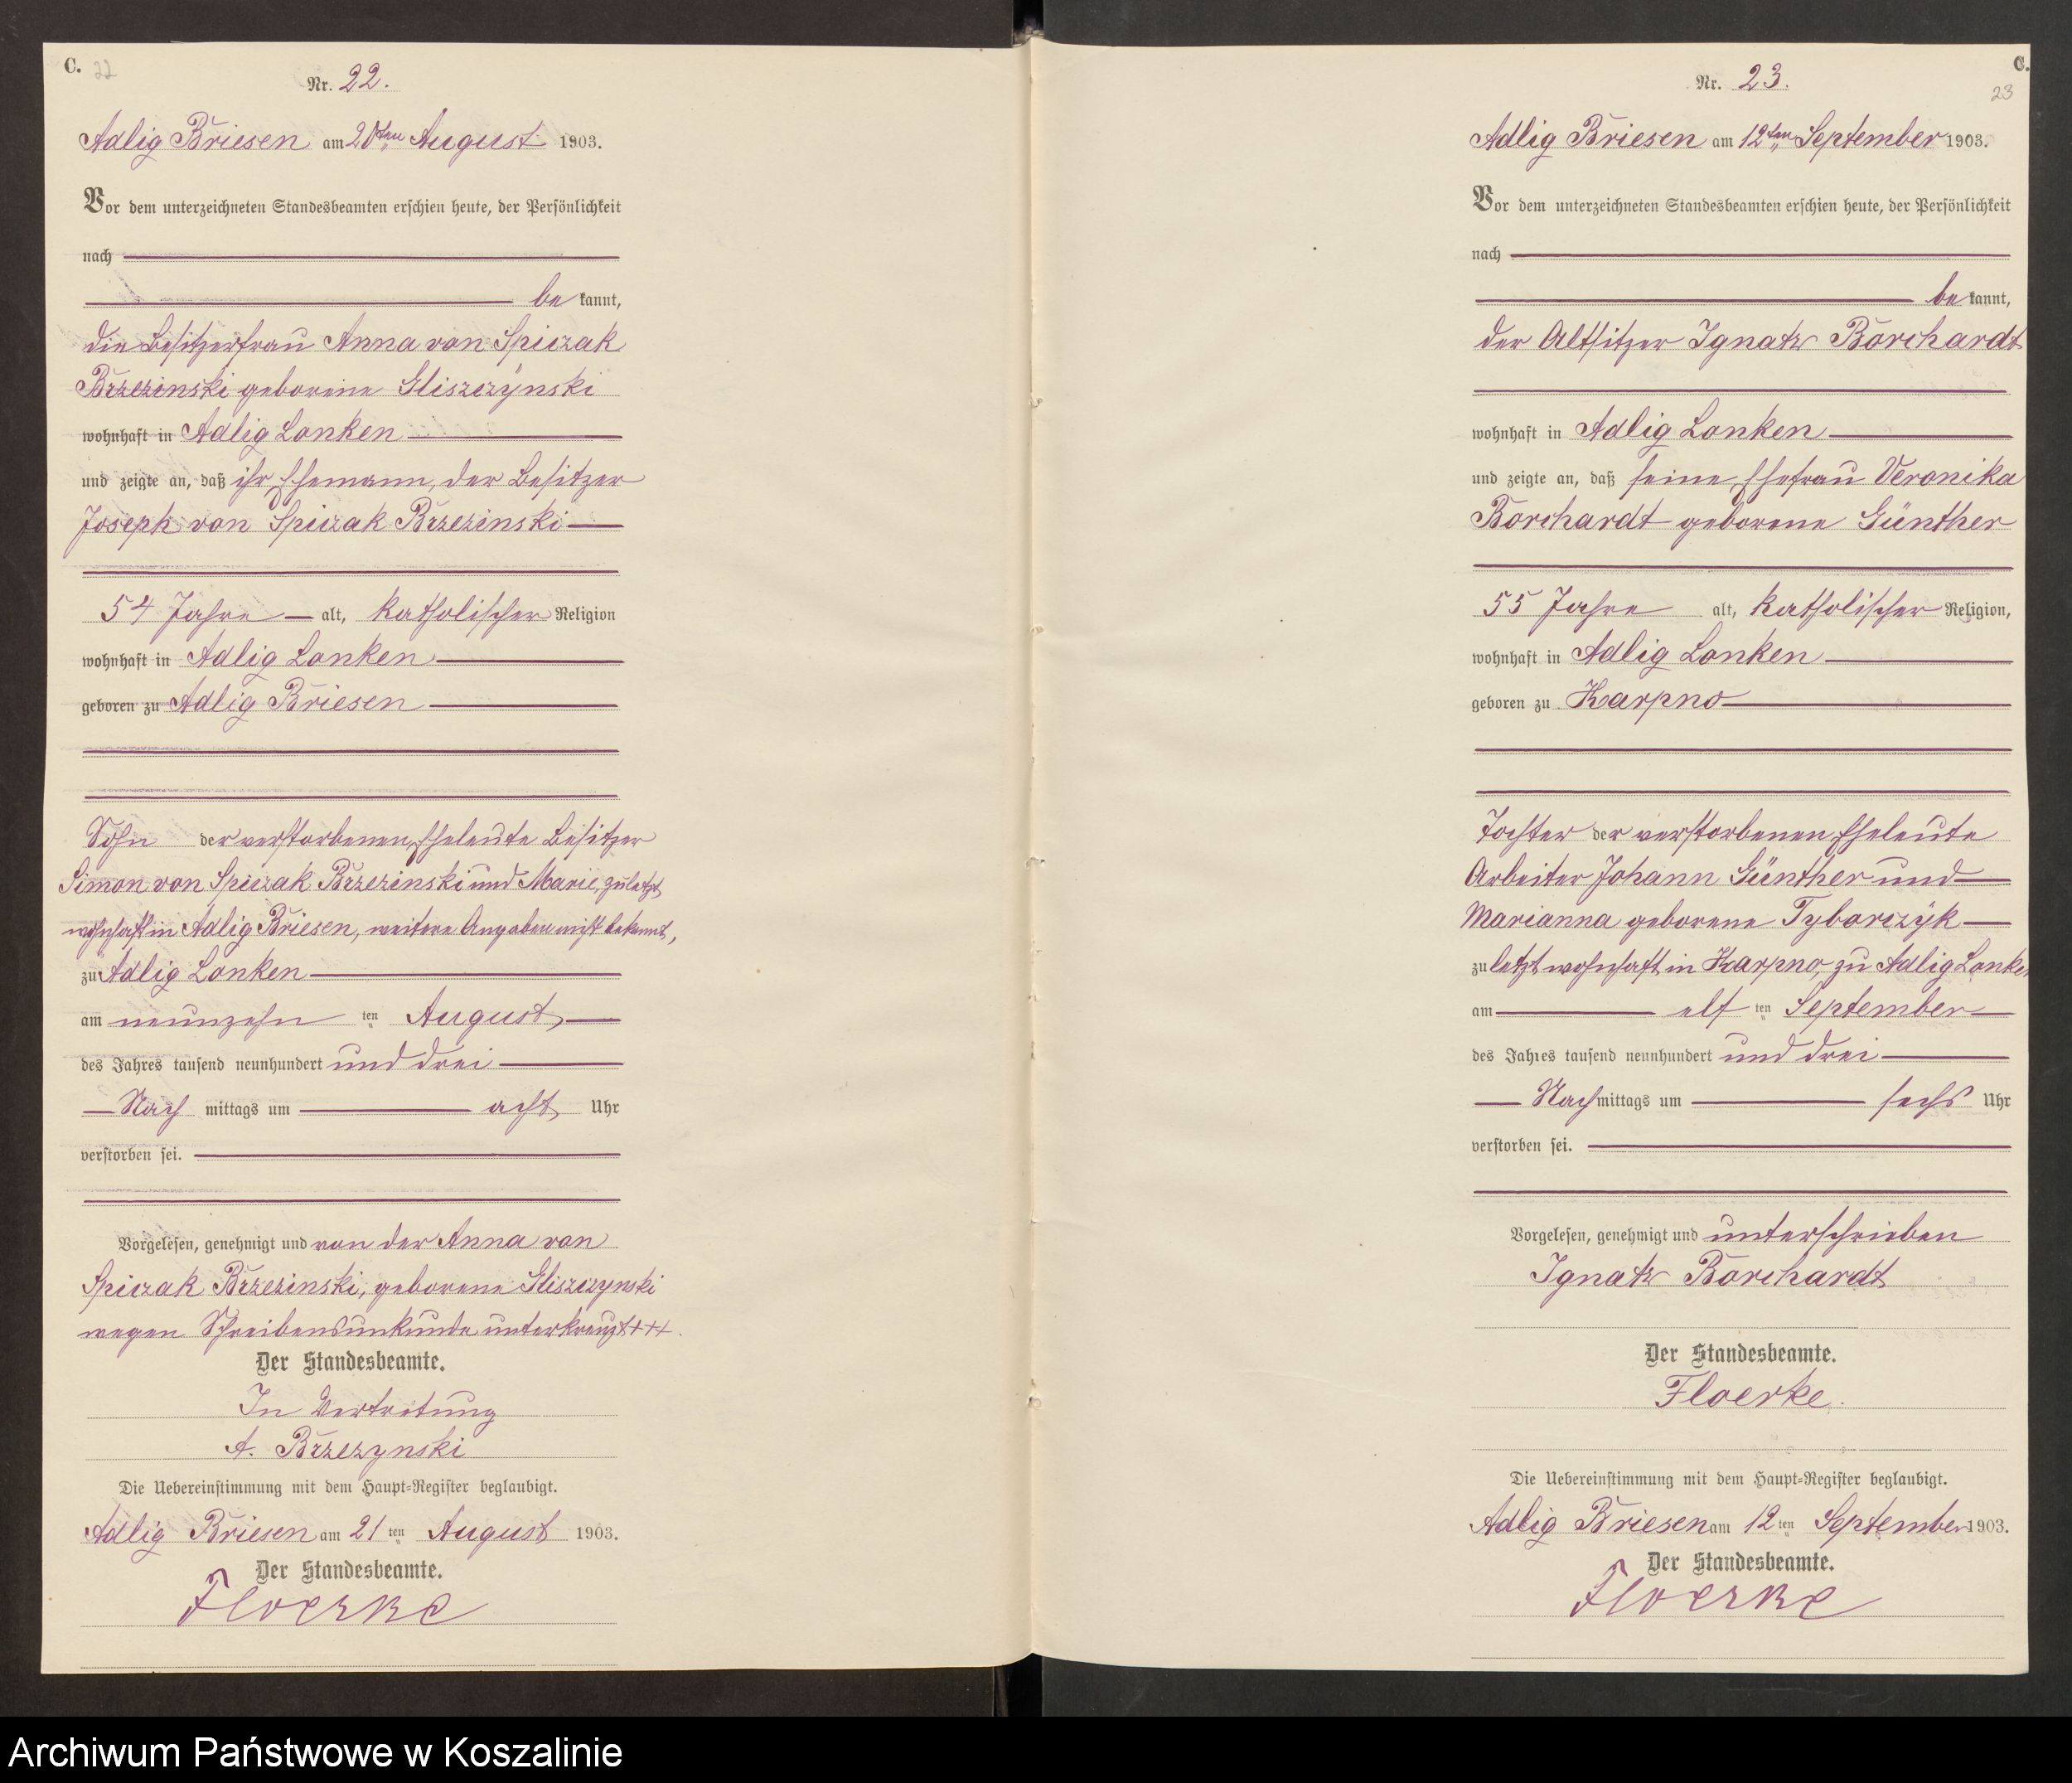 C. 22
Nr. 22.
Adlig Briesen am 20ten August 1903.
Vor dem unterzeichneten Standesbeamten erschien heute, der Persönlichkeit
nach
be kannt,
die Besitzerfrau Anna von Spiczak
Brzezinski geborene Gliszczynski
wohnhaft in Adlig Lonken
und zeigte an, daß ihr Ehemann, der Besitzer
Joseph von Spiczak Brzezinski
54 Jahre alt, katholischer Religion
wohnhaft in Adlig Lonken
geboren zu Adlig Briesen
Sohn der verstorbenen Eheleute Besitzer
Simon von Spiczak Brzezinski und Marie, zuletzt
wohnhaft in Adlig Briesen, weitere Angaben nicht bekannt,
zu Adlig Lonken
am neunzehn ten August
des Jahres tausend neunhundert und drei
Nach mittags um acht Uhr
verstorben sei.
Vorgelesen, genehmigt und von der Anna von
Spiczak Brzezinski, geborene Gliszczynski
wegen Schreibensunkunde unterkreuzt +++.
Der Standesbeamte.
In Vertretung
A. Brzezynski
Die Uebereinstimmung mit dem Haupt=Register beglaubigt.
Adlig Briesen am 21 ten August 1903.
Der Standesbeamte.
Floerke
C.
23
Nr. 23.
Adlig Briesen am 12ten September 1903.
Vor dem unterzeichneten Standesbeamten erschien heute, der Persönlichkeit
nach
be kannt,
der Altsitzer Ignatz Borchardt
wohnhaft in Adlig Lonken
und zeigte an, daß seine Ehefrau Veronika
Borchardt geborene Günther
55 Jahre alt, katholischer Religion,
wohnhaft in Adlig Lonken
geboren zu Karpno
Tochter der verstorbenen Eheleute
Arbeiter Johann Günther und
Marianna geborene Tyborczyk
zuletzt wohnhaft in Karpno, zu Adlig Lonken
am elf ten September
des Jahres tausend neunhundert und drei
Nach mittags um sechs Uhr
verstorben sei.
Vorgelesen, genehmigt und unterschrieben
Ignatz Borchardt
Der Standesbeamte.
Floerke.
Die Uebereinstimmung mit dem Haupt=Register beglaubigt.
Adlig Briesen am 12 ten September 1903.
Der Standesbeamte.
Floerke
Archiwum Państwowe w Koszalinie